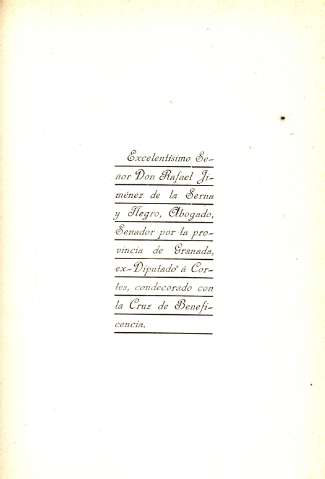 Excelentísimo Se-
ñor Don Rafael Ji-
ménez de la Serna
y Negro, Abogado,
Senador por la pro-
vincia de Granada,
ex-Diputado á Cor-
tes, condecorado con
la Cruz de Benefi-
cencia.